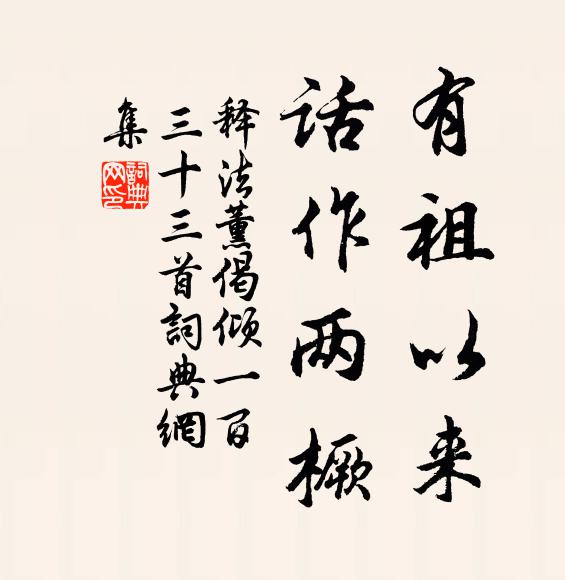 有祖以来
话作两橛
释法薰偈倾一百
三十三首詞典網
集
詞典網印